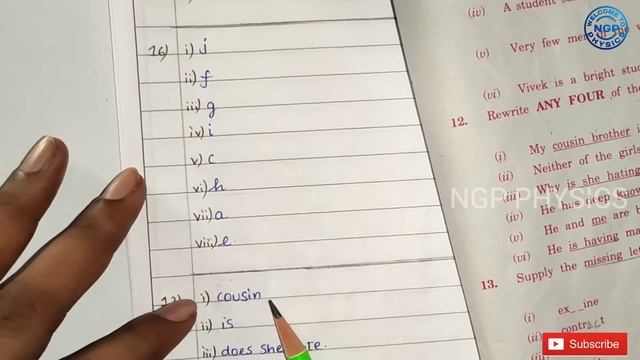 16) i) j
ii) f
iii) g
iv) i
v) c
vi) h
vii) a
viii) e.
i) cousin
ii) is
iii) does she
(iv) A student
(v) Very few
(vi) Vivek is a bright
12. Rewrite ANY FOUR of the
(i) My cousin brother
(ii) Neither of the girls
(iii) Why is she hating
(iv) He has deep
(v) He and me are
(vi) He is having
13. Supply the missing
(i) ex__ine
(ii)
WELCOME TO
NGP
PHYSICS
NGP PHYSICS
Subscribe